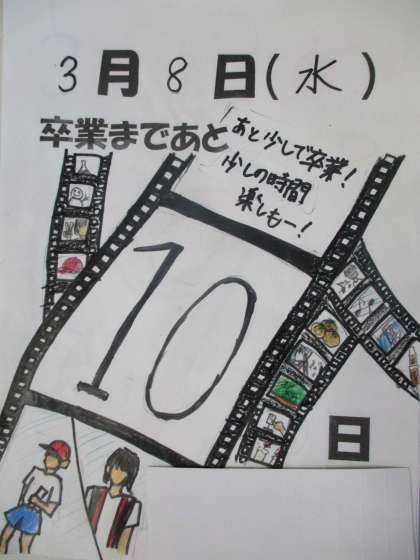 3月8日(水)
卒業まであと
あと少しで卒業!
少しの時間
楽しもー!
10
日